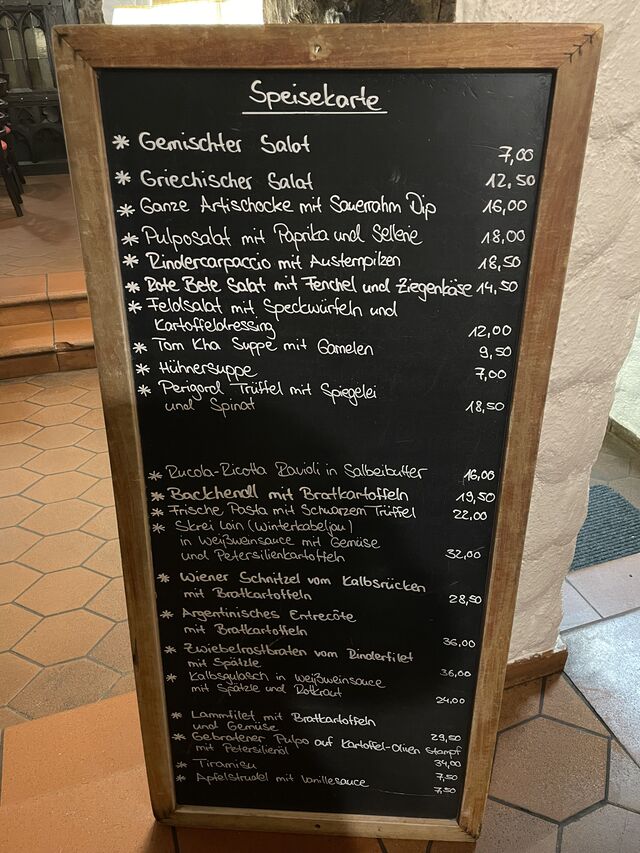 Speisekarte
* Gemischter Salat 7,00
* Griechischer Salat 12,50
* Ganze Artischocke mit Sauerrahm Dip 16,00
* Pulposalat mit Paprika und Sellerie 18,00
* Rindercarpaccio mit Austernpilzen 18,50
* Rote Bete Salat mit Fenchel und Ziegenkäse 14,50
* Feldsalat mit Speckwürfeln und
Kartoffeldressing 12,00
* Tom Kha Suppe mit Garnelen 9,50
* Hühnersuppe 7,00
* Perigord Trüffel mit Spiegelei
und Spinat 18,50
* Rucola-Ricotta Ravioli in Salbeibutter 16,00
* Backhendl mit Bratkartoffeln 19,50
* Frische Pasta mit Schwarzem Trüffel 22,00
* Skrei Loin (Winterkabeljau)
in Weißweinsauce mit Gemüse
und Petersilienkartoffeln 32,00
* Wiener Schnitzel vom Kalbsrücken
mit Bratkartoffeln 28,50
* Argentinisches Entrecôte
mit Bratkartoffeln 36,00
* Zwiebelrostbraten vom Rinderfilet
mit Spätzle 36,00
* Kalbsgulasch in Weißweinsauce
mit Spätzle und Rotkraut 24,00
* Lammfilet mit Bratkartoffeln
und Gemüse 29,50
* Gebratener Pulpo auf Kartoffel-Oliven Stampf
mit Petersilienöl 34,00
* Tiramisu 7,50
* Apfelstrudel mit Vanillesauce 7,50